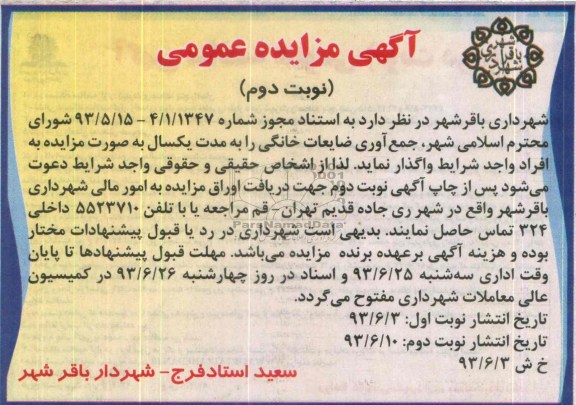 آگهی مزایده عمومی
شهرداری
باقرشهر
(نوبت دوم)
شهرداری باقرشهر در نظر دارد به استناد مجوز شماره ۴/۱/۱۳۴۷ - ۹۳/۵/۱۵ شورای
محترم اسلامی شهر، جمع آوری ضایعات خانگی را به مدت یکسال به صورت مزایده به
افراد واجد شرایط واگذار نماید. لذا از اشخاص حقیقی و حقوقی واجد شرایط دعوت
می‌شود پس از چاپ آگهی نوبت دوم جهت دریافت اوراق مزایده به امور مالی شهرداری
باقرشهر واقع در شهر ری جاده قدیم تهران - قم مراجعه یا با تلفن ۵۵۲۳۷۱۰ داخلی
۳۲۴ تماس حاصل نمایند. بدیهی است شهرداری در رد یا قبول پیشنهادات مختار
بوده و هزینه آگهی برعهده برنده مزایده می‌باشد. مهلت قبول پیشنهادها تا پایان
وقت اداری سه‌شنبه ۹۳/۶/۲۵ و اسناد در روز چهارشنبه ۹۳/۶/۲۶ در کمیسیون
عالی معاملات شهرداری مفتوح می‌گردد.
تاریخ انتشار نوبت اول: ۹۳/۶/۳
تاریخ انتشار نوبت دوم: ۹۳/۶/۱۰
خ ش ۹۳/۶/۳
سعید استادفرج - شهردار باقر شهر
ParaNamadData